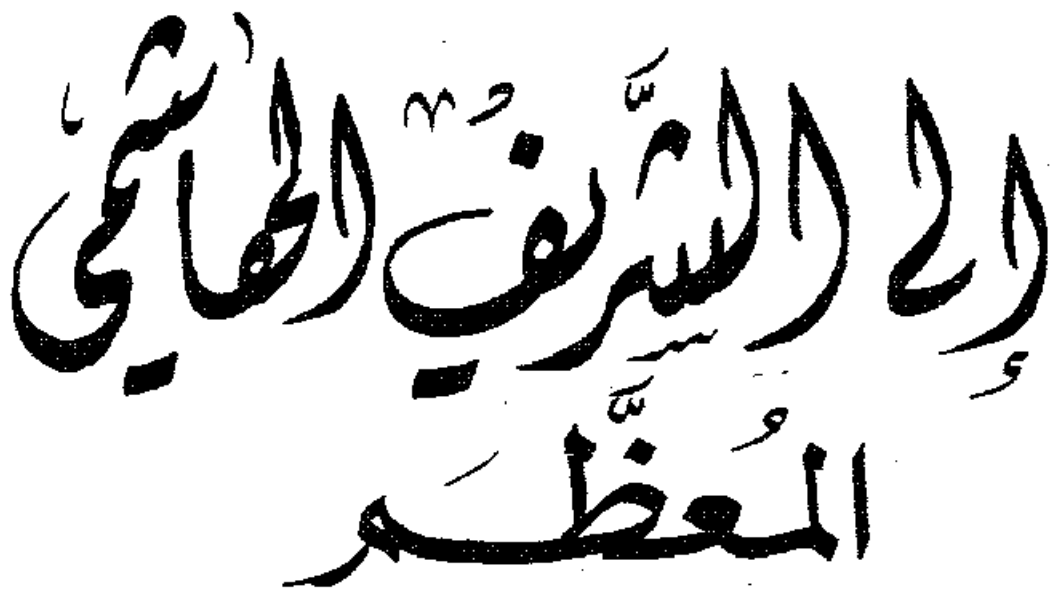 إلى الشَّريفُ الهاشمي
المُعظَّم